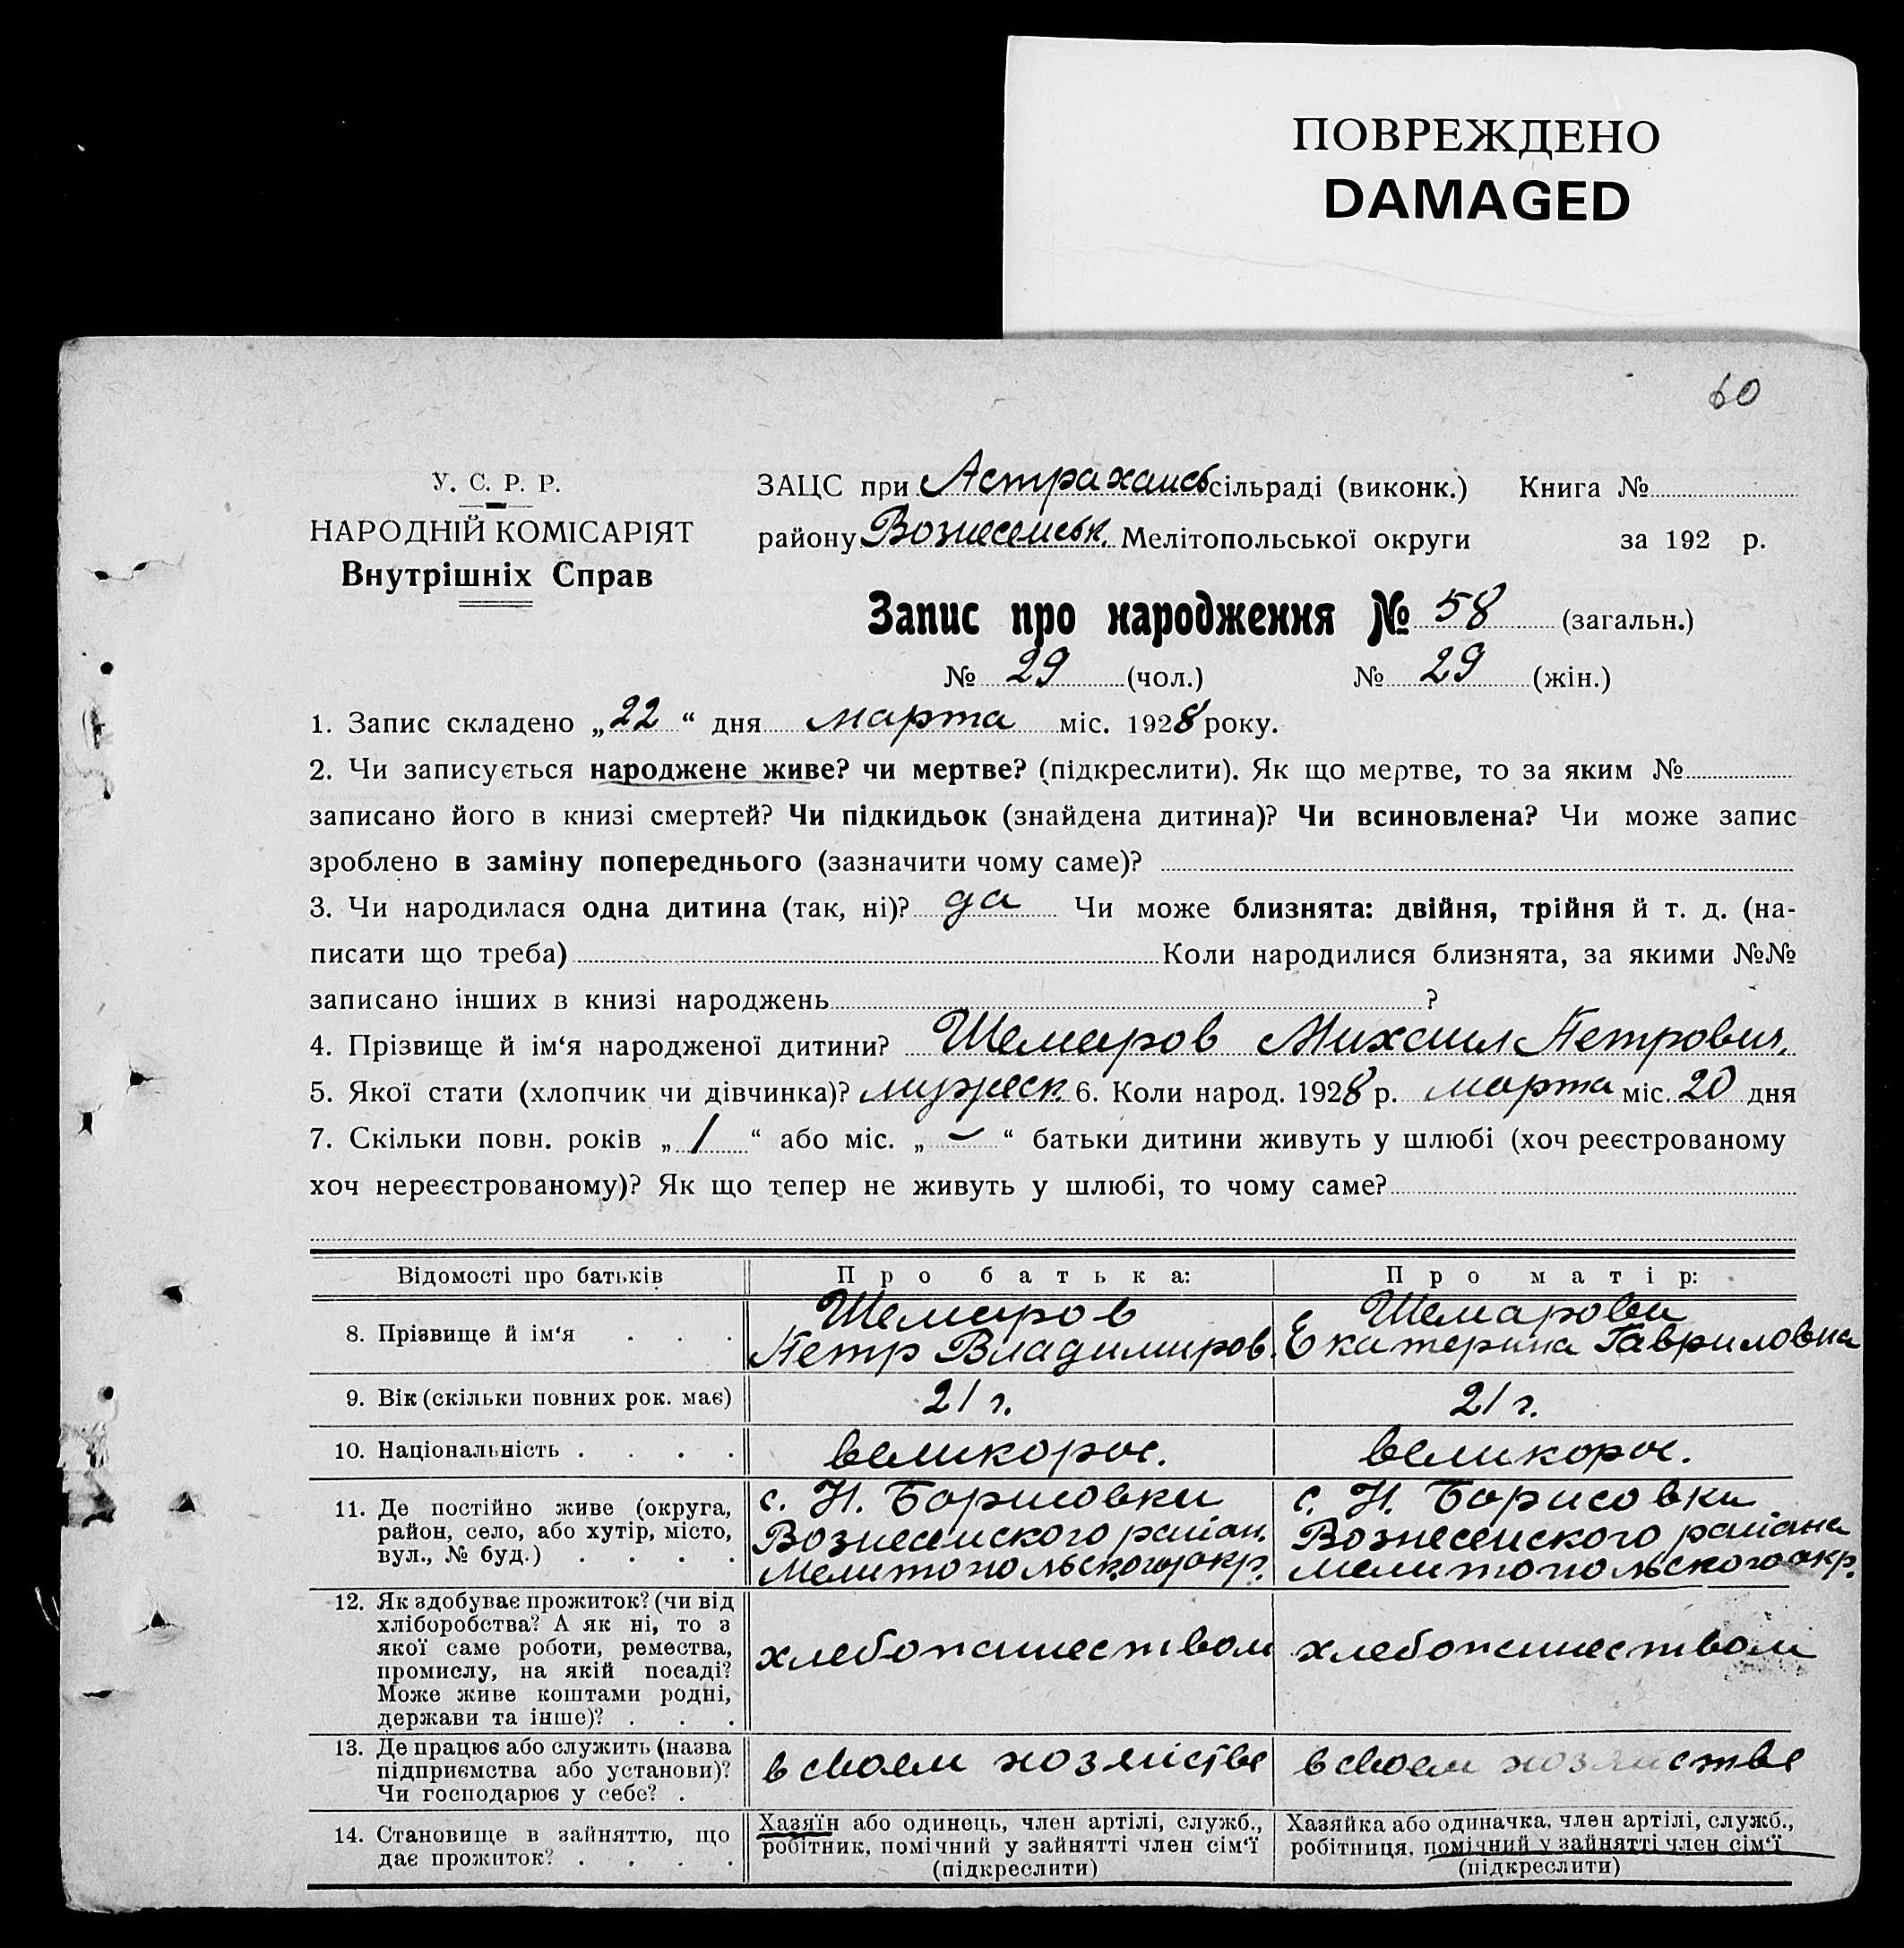 ПОВРЕЖДЕНО
DAMAGED
60
У. С. Р. Р.
НАРОДНІЙ КОМІСАРІЯТ
Внутрішніх Справ
ЗАЦС при Астраханськ сільраді (виконк.) Книга №
району Вознесенськ. Мелітопольської округи за 192 р.
Запис про народження № 58 (загальн.)
№ 29 (чол.) № 29 (жін.)
1. Запис складено „22“ дня марта міс. 1928 року.
2. Чи записується народжене живе? чи мертве? (підкреслити). Як що мертве, то за яким №
записано його в книзі смертей? Чи підкидьок (знайдена дитина)? Чи всиновлена? Чи може запис
зроблено в заміну попереднього (зазначити чому саме)?
3. Чи народилася одна дитина (так, ні)? да Чи може близнята: двійня, трійня й т. д. (на-
писати що треба) Коли народилися близнята, за якими №№
записано інших в книзі народжень ?
4. Прізвище й ім‘я народженої дитини? Шемаров Михаил Петрович.
5. Якої стати (хлопчик чи дівчинка)? мужеск. 6. Коли народ. 1928 р. марта міс. 20 дня
7. Скільки повн. років „1“ або міс. „–“ батьки дитини живуть у шлюбі (хоч реєстрованому
хоч нереєстрованому)? Як що тепер не живуть у шлюбі, то чому саме?
Відомості про батьків Про батька: Про матір:
8. Прізвище й ім‘я . . . Шемаров Петр Владимиров. Шемарова Екатерина Гавриловна
9. Вік (скільки повних рок. має) 21 г. 21 г.
10. Національність . . . . великорос. великорос.
11. Де постійно живе (округа,
район, село, або хутір, місто,
вул., № буд.) . . . .
с. Н. Борисовки
Вознесенского район.
Мелитопольского окр.
с. Н. Борисовки
Вознесенского района
Мелитопольского окр.
12. Як здобуває прожиток? (чи від
хліборобства? А як ні, то з
якої саме роботи, ремества,
промислу, на якій посаді?
Може живе коштами родні,
держави та інше)? . . .
хлебопашеством хлебопашеством
13. Де працює або служить (назва
підприємства або установи)?
Чи господарює у себе? .
в своем хозяйстве в своем хозяйстве
14. Становище в зайняттю, що
дає прожиток? . . . .
Хазяїн або одинець, член артілі, служб.,
робітник, помічний у зайнятті член сім‘ї
(підкреслити)
Хазяйка або одиначка, член артілі, служб.,
робітниця, помічний у зайнятті член сім‘ї
(підкреслити)